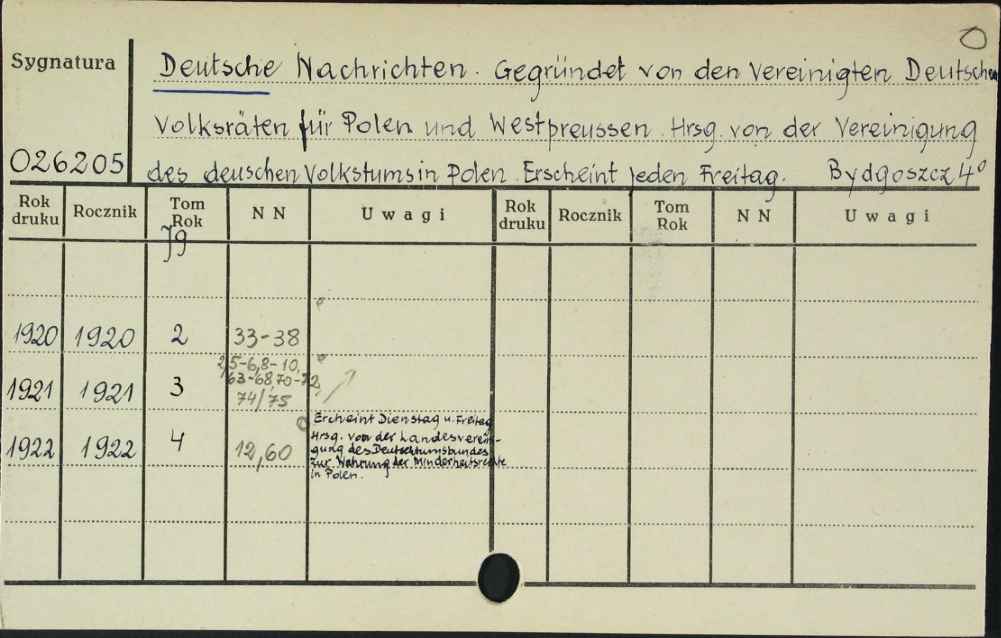 Sygnatura
Deutsche Nachrichten. Gegründet von den Vereinigten Deutschen
Volksräten für Polen und Westpreussen. Hrsg. von der Vereinigung
026205
des deuschen Volkstums in Polen. Erscheint jeden Freitag. Bydgoszcz 4°
Rok druku Rocznik Tom Rok NN Uwagi Rok druku Rocznik Tom Rok NN Uwagi
Jg
1920 1920 2 33-38
1921 1921 3 2,5-6,8-10, 63-68,70-72, 74/75
1922 1922 4 12,60
Ercheint Dienstag u. Freitag
Hrsg. von der Landesverein-
gung des Deutschtumsbundes
zur Wahrung der Minderheitsrechte
in Polen.